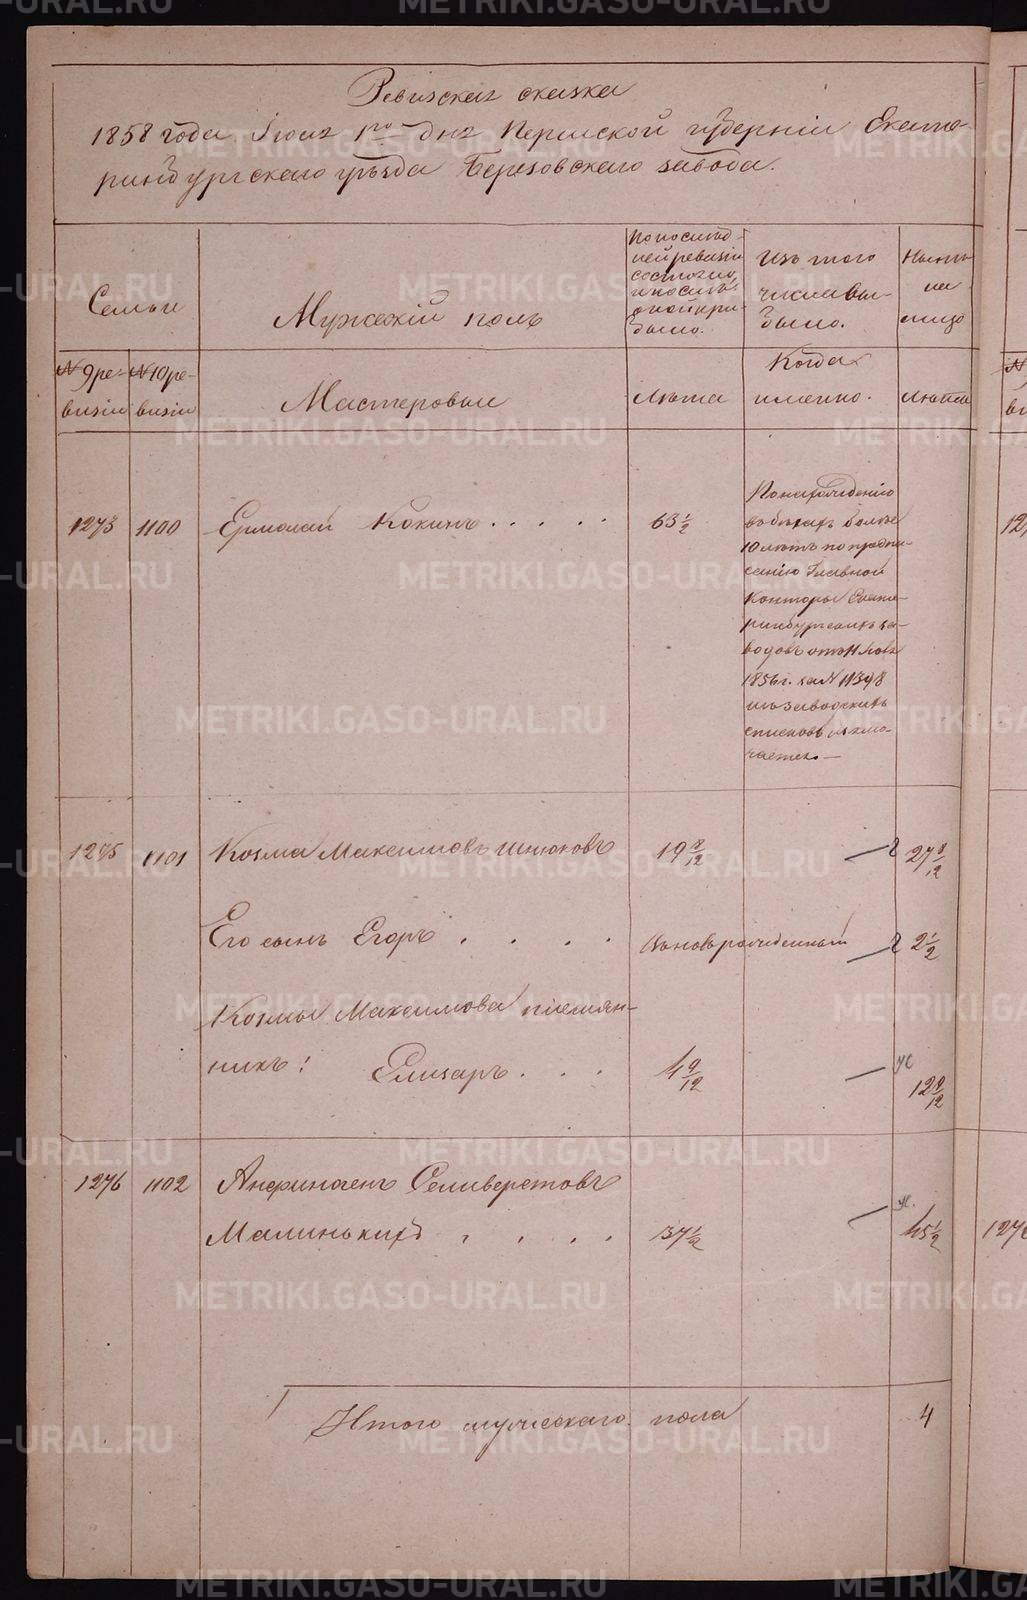 Ревизская сказка
1858 года Iюня 1го дня Пермской губернiи Екате-
ринбургскаго уѣзда Березовскаго завода.
Семьи
Мужескiй полъ
По послѣд-
ней ревизiи
состояло
и послѣ
оной при-
было.
Изъ того
числа вы-
было.
Нынѣ
на
лицо
№ 9 ре-
визiи
№ 10 ре-
визiи
Мастеровыи
Лѣта
Когда
именно.
Лѣта
1273 1100 Ермолай Кокинъ . . . . . 63 1/2
По нахожденiю
въ бѣгахъ болѣе
10 лѣтъ по предпи-
санiю Главной
Конторы Екате-
ринбургскихъ за-
водовъ отъ
1856 г. за № 11398
изъ заводскихъ
списковъ исклю-
чается.—
1275 1101 Козма Максимовъ Шнюковъ 19 8/12 27 8/12
Его сынъ Егоръ . . . . Вновьрожденный 2 1/2
Козмы Максимова племян-
никъ: Елизаръ . . . 4 9/12 12 9/12
1276 1102 Анфиногенъ Селиверстовъ
Малинькихъ . . . . 37 1/2 45 1/2
Итого мужескаго пола 4
METRIKI.GASO-URAL.RU